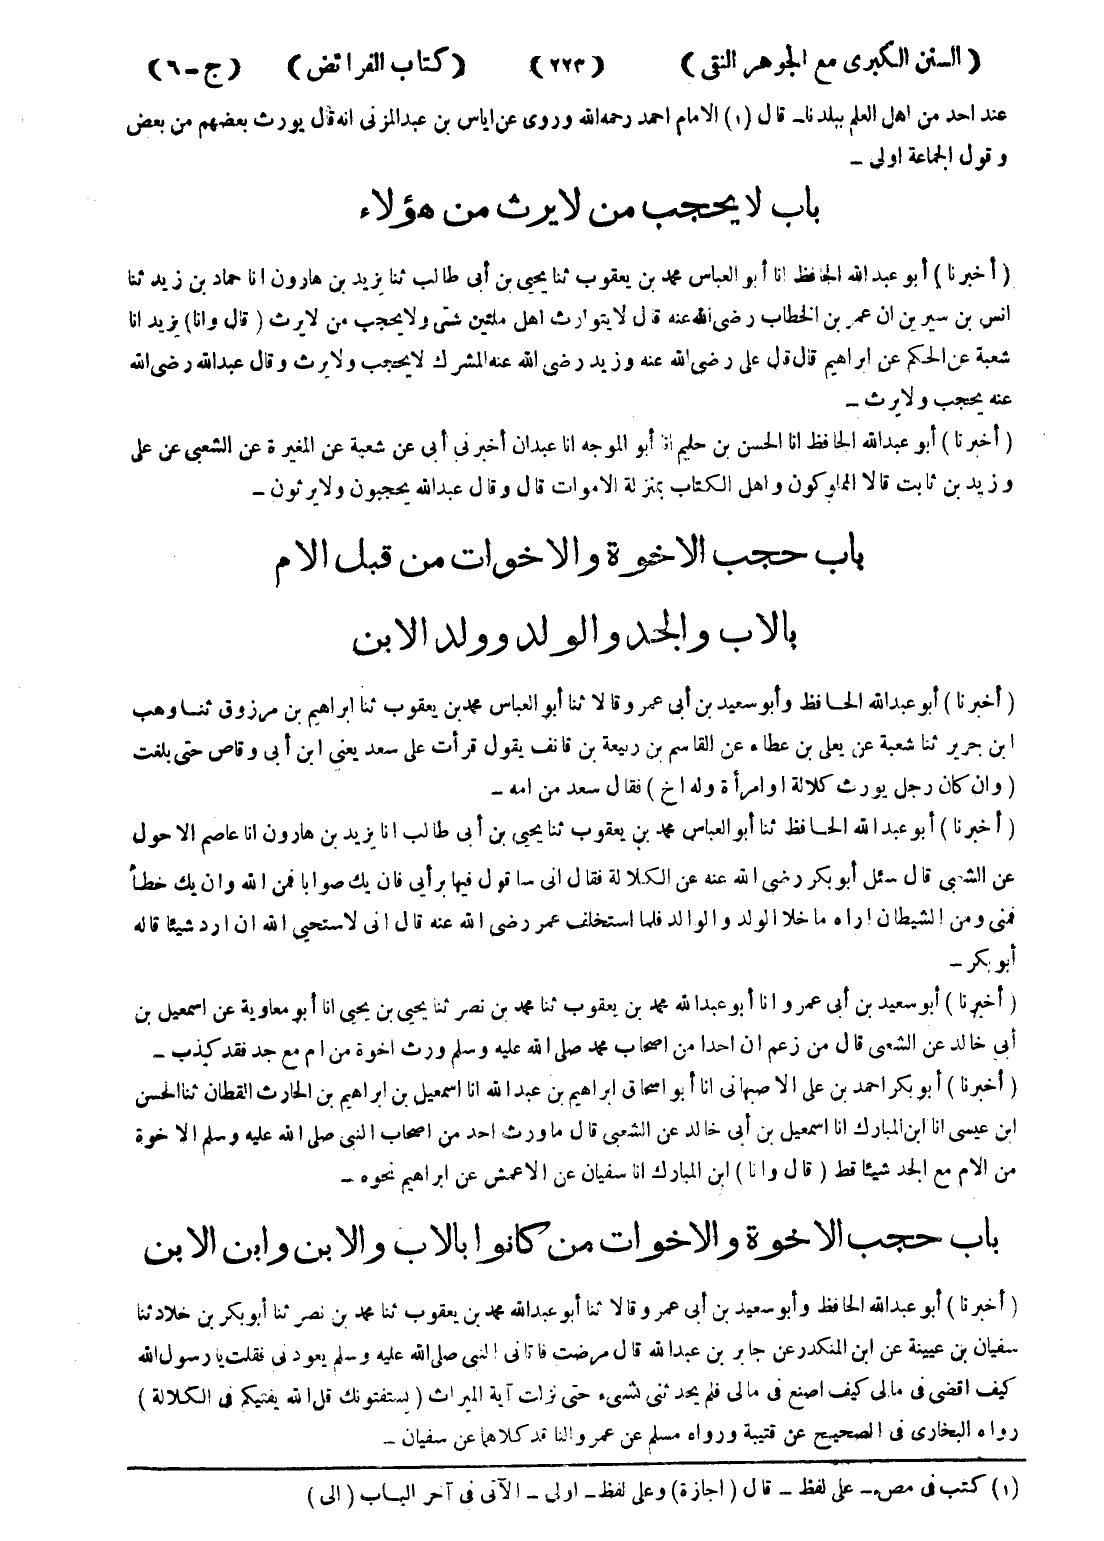 ( السنن الكبرى مع الجوهر النقى ) (٢٢٣) ( كتاب الفرائض ) ( ج - ٦ )
عند احد من اهل العلم ببلدنا - قال (١) الامام احمد رحمه الله وروى عن اياس بن عبد المزنى انه قال يورث بعضهم من بعض
وقول الجماعة اولى -
باب لا يحجب من لا يرث من هؤلاء
( أخبرنا ) أبو عبد الله الحافظ انا أبو العباس محمد بن يعقوب ثنا يحيى بن أبى طالب ثنا يزيد بن هارون انا حماد بن زيد ثنا
انس بن سيرين ان عمر بن الخطاب رضى الله عنه قال لا يتوارث اهل ملتين شتى ولا يحجب من لا يرث ( قال وانا ) يزيد انا
شعبة عن الحكم عن ابراهيم قال قال على رضى الله عنه وزيد رضى الله عنه المشرك لا يحجب ولا يرث وقال عبد الله رضى الله
عنه يحجب ولا يرث -
( أخبرنا ) أبو عبد الله الحافظ انا الحسن بن حليم انا أبو الموجه انا عبدان أخبرنى أبى عن شعبة عن المغيرة عن الشعبى عن على
وزيد بن ثابت قالا المملوكون واهل الكتاب بمنزلة الاموات قال وقال عبد الله يحجبون ولا يرثون -
باب حجب الاخوة والاخوات من قبل الام
بالاب والجد والولد وولد الابن
( أخبرنا ) أبو عبد الله الحافظ وأبو سعيد بن أبى عمرو قالا ثنا أبو العباس محمد بن يعقوب ثنا ابراهيم بن مرزوق ثنا وهب
ابن جرير ثنا شعبة عن يعلى بن عطاء عن القاسم بن ربيعة بن قانف يقول قرأت على سعد يعنى ابن أبى وقاص حتى بلغت
( وان كان رجل يورث كلالة او امرأة وله اخ ) فقال سعد من امه -
( أخبرنا ) أبو عبد الله الحافظ ثنا أبو العباس محمد بن يعقوب ثنا يحيى بن أبى طالب انا يزيد بن هارون انا عاصم الاحول
عن الشعبى قال سئل أبو بكر رضى الله عنه عن الكلالة فقال انى ساقول فيها برأيى فان يك صوابا فمن الله وان يك خطأ
فمنى ومن الشيطان اراه ما خلا الولد والوالد فلما استخلف عمر رضى الله عنه قال انى لاستحيى الله ان ارد شيئا قاله
أبو بكر -
( أخبرنا ) أبو سعيد بن أبى عمرو انا أبو عبد الله محمد بن يعقوب ثنا محمد بن نصر ثنا يحيى بن يحيى انا أبو معاوية عن اسمعيل بن
أبى خالد عن الشعبى قال من زعم ان احدا من اصحاب محمد صلى الله عليه وسلم ورث اخوة من ام مع جد فقد كذب -
( أخبرنا ) أبو بكر احمد بن على الاصبهانى انا أبو اسحاق ابراهيم بن عبد الله انا اسمعيل بن ابراهيم بن الحارث القطان ثنا الحسن
ابن عيسى انا ابن المبارك انا اسمعيل بن أبى خالد عن الشعبى قال ما ورث احد من اصحاب النبى صلى الله عليه وسلم الاخوة
من الام مع الجد شيئا قط ( قال وانا ) ابن المبارك انا سفيان عن الاعمش عن ابراهيم نحوه -
باب حجب الاخوة والاخوات من كانوا بالاب والابن وابن الابن
( أخبرنا ) أبو عبد الله الحافظ وأبو سعيد بن أبى عمرو قالا ثنا أبو عبد الله محمد بن يعقوب ثنا محمد بن نصر ثنا أبو بكر بن خلاد ثنا
سفيان بن عيينة عن ابن المنكدر عن جابر بن عبد الله قال مرضت فاتانى النبى صلى الله عليه وسلم يعودنى فقلت يا رسول الله
كيف اقضى فى مالى كيف اصنع فى مالى فلم يحدثنى بشىء حتى نزلت آية الميراث ( يستفتونك قل الله يفتيكم فى الكلالة )
رواه البخارى فى الصحيح عن قتيبة ورواه مسلم عن عمرو الناقد كلاهما عن سفيان -
(١) كتب فى مص - على لفظ - قال ( اجازة ) وعلى لفظ - اولى - الآتى فى آخر الباب ( الى )